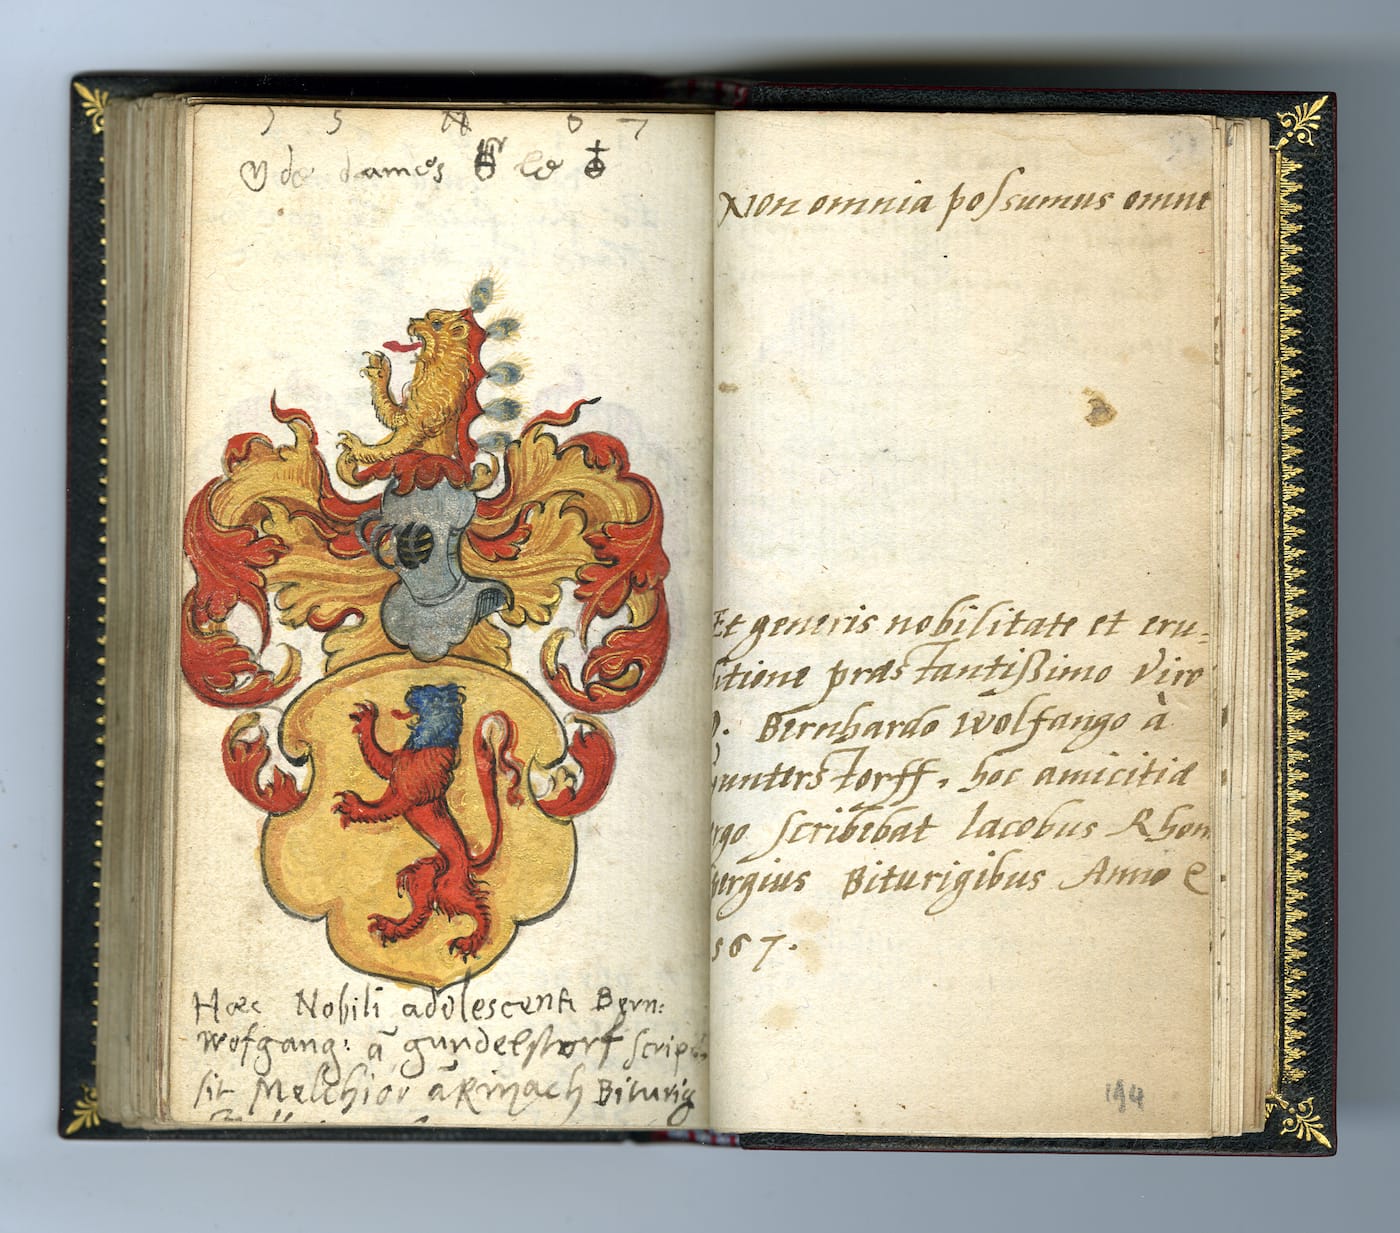 1 5 N 6 7
de dames le
Hæc Nobili adolescenti Bern:
Wofgang: ã Gundelstorf scrip
sit Melchior ã Rinach Biturig
Non omnia possumus omne
Et generis nobilitate et eru-
ditione præstantißimo Viro
D. Bernhardo Wolfango à
Guntterstorff, hoc amicitiæ
ergo scribebat Iacobus Rhon
bergius Biturigibus Anno
567.
194